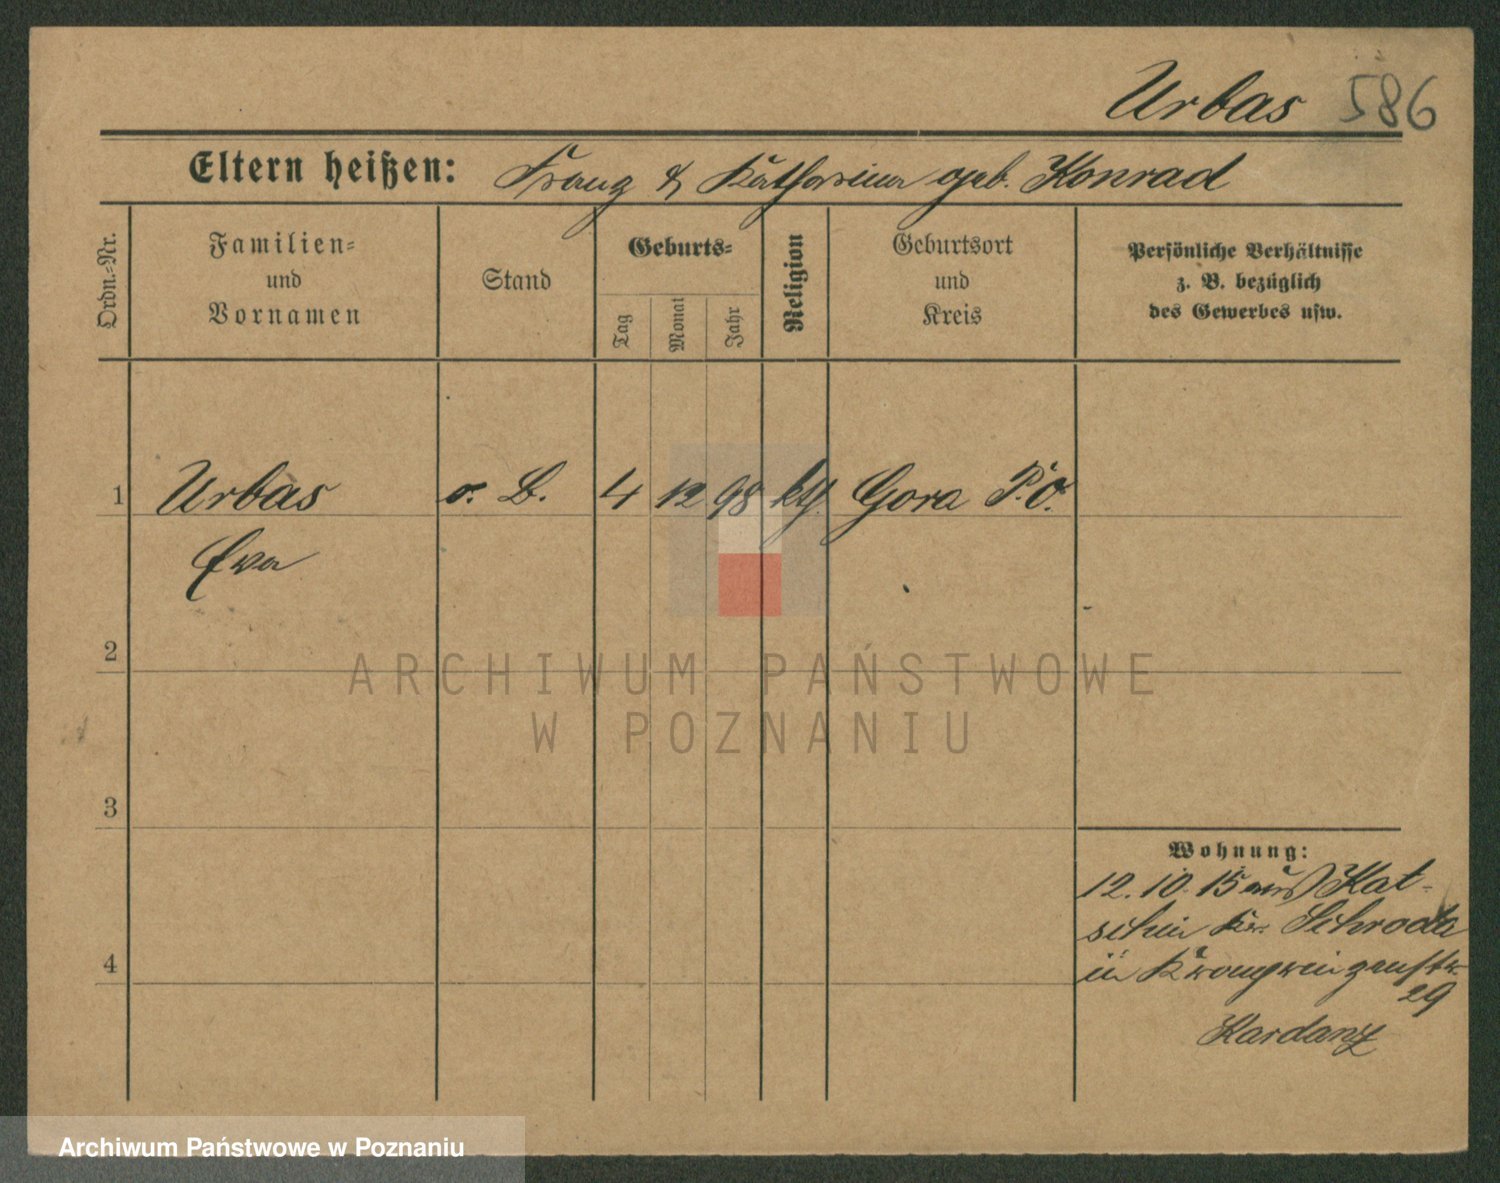 Urbas 586
Eltern heißen: Franz & Katharina geb. Konrad
Ordn.-Nr.
Familien-
und
Vornamen
Stand
Geburts-
Tag
Monat
Jahr
Religion
Geburtsort
und
Kreis
Persönliche Verhältnisse
z. B. bezüglich
des Gewerbes usw.
1 Urbas o. B. 4 12 98 kth. Gora P. O.
Eva
2
ARCHIWUM PAŃSTWOWE
W POZNANIU
3
Wohnung:
12. 10. 15 aus Kat-
schin Kr. Schroda
in Kronprinzenstr.
29
4
Archiwum Państwowe w Poznaniu